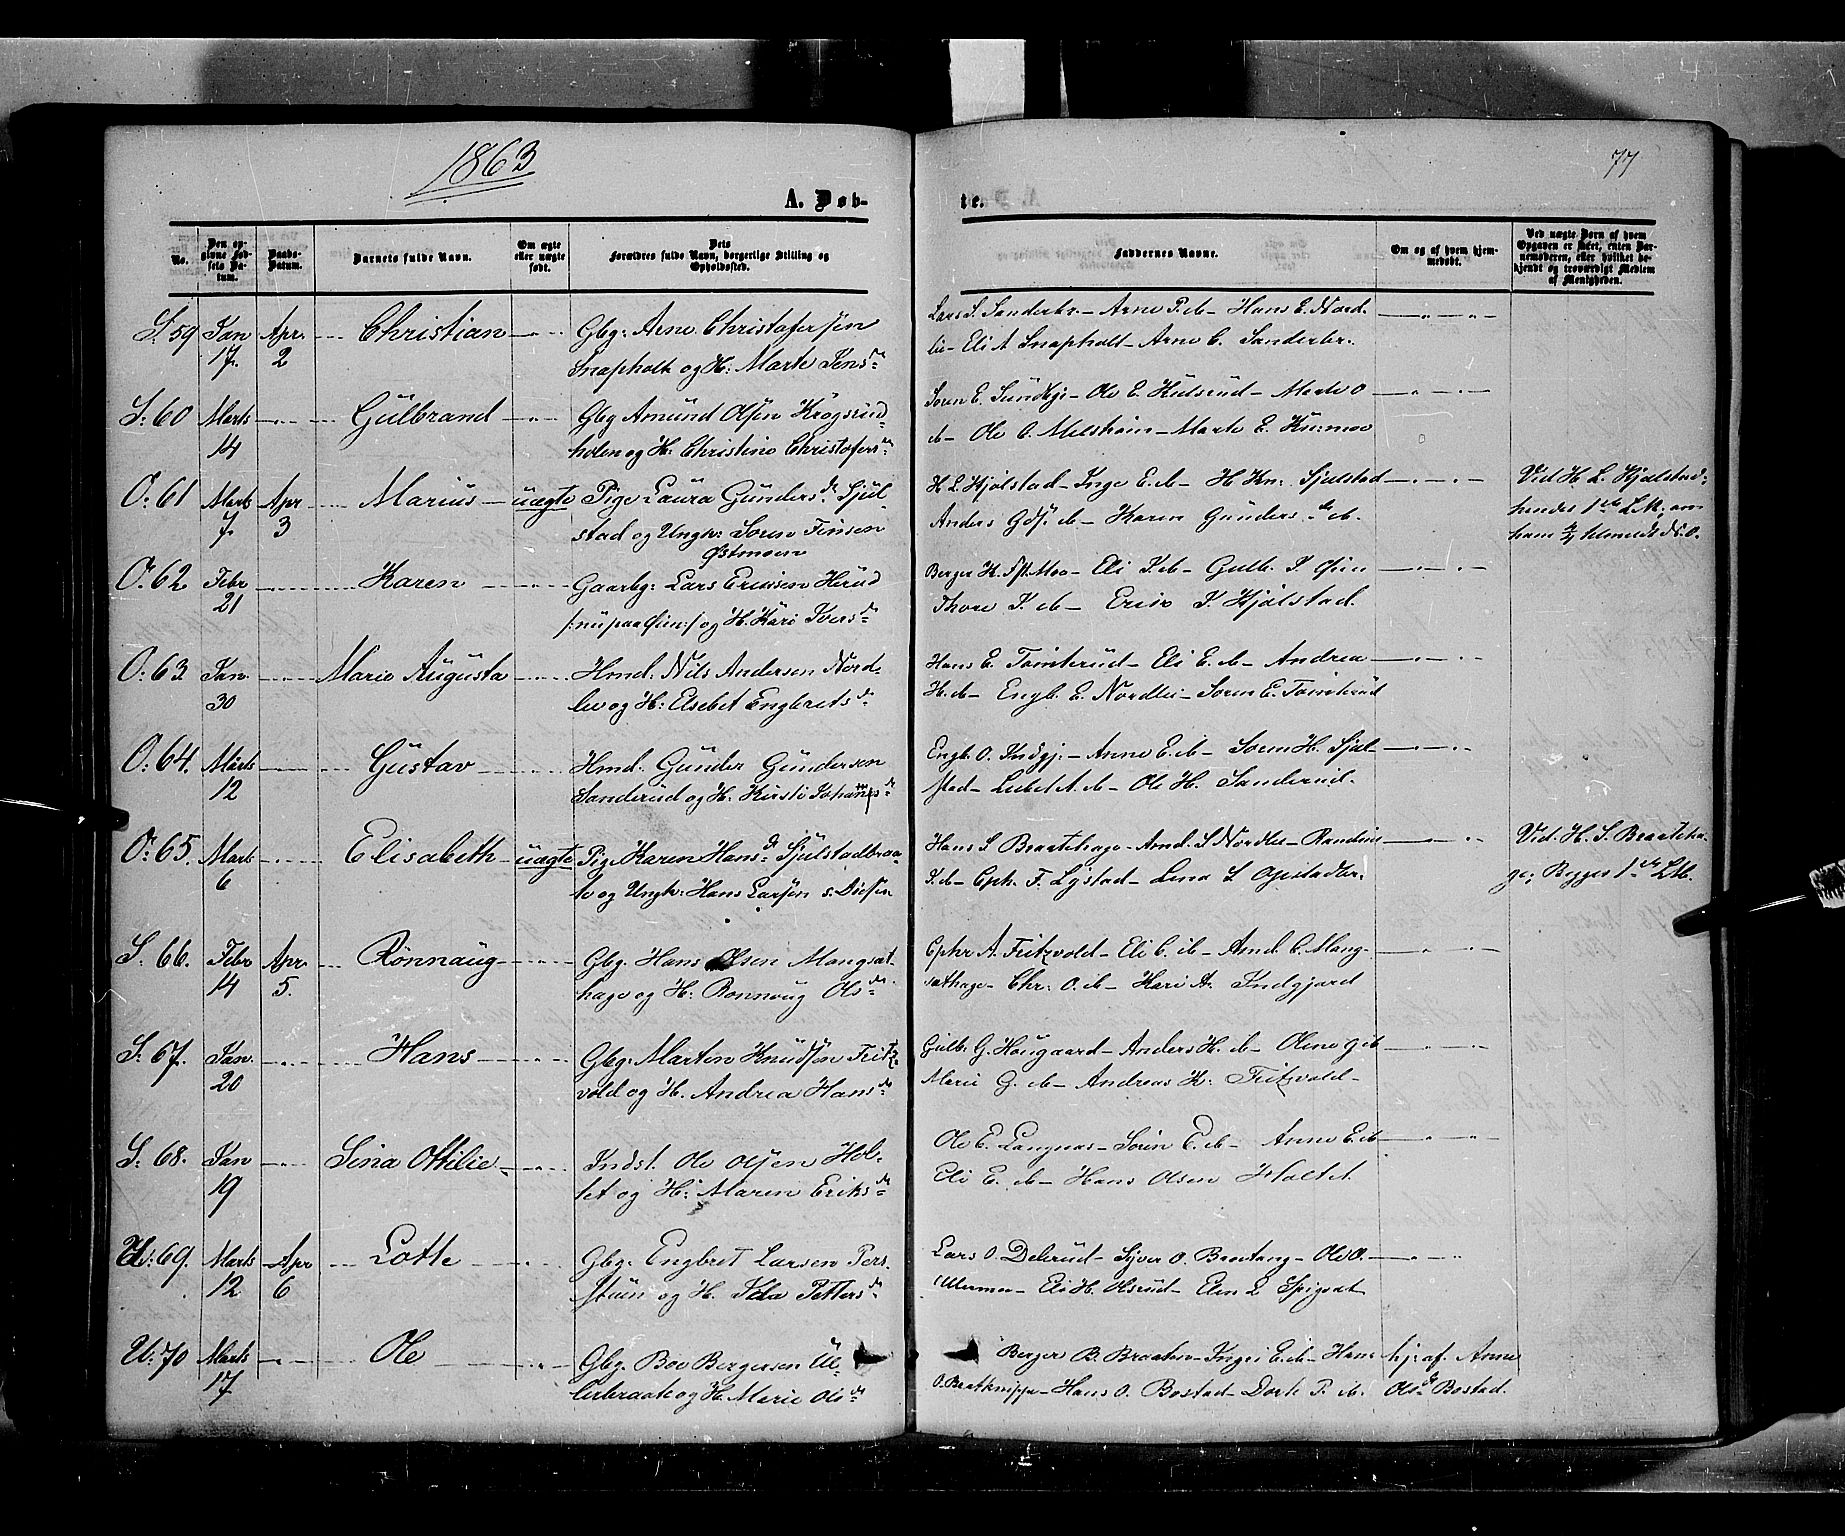 1863
77
A. Døb-
te.
No.
Den op-
givne Fød-
sels Da-
tum.
Daabs-
Datum.
Barnets fulde Navn.
Om ægte
eller uægte
født.
Dets
Forældres fulde Navn, borgerlige Stilling og
Opholdssted.
Faddernes Navne.
Om og af hvem hjem-
medøbt.
Ved uægte Børn af hvem
Opgaven er skeet, enten Bar-
nemoderen, eller hvilket be-
kjendt og troværdigt Medlem
af Menigheden.
S. 59 Jan 17. Apr. 2 Christian
Gbg: Arne Christofersen
Snapholt og H: Marte Jensd.
Lars S. Sanderbr.- Arne P. ib- Hans E. Nord-
lie- Eli A Snapholt- Arne C. Sanderbr.
S: 60 Marts 14 Gulbrand
Gbg Amund Olsen Krogsrud-
holen og H: Christine Christofersd.
Søren E. Sundbye- Ole E. Hulsrud- Marte O
ib- Ole C. Melshain- Marte E.
O: 61 Marts 7. Apr 3 Marius uægte
Pige Laura Gundersd. Sjul-
stad og Ungk: Søren Finsen
Østmoen
H L. Hjølstad- Inge E. ib- H Kn: Sjulstad
Anders Gds. ib- Karen Gundersd. ib.
Ved H. L. Hjølstad;
hendes 1ste Lm; om
ham tilmeldt
O. 62 Febr 21 Karen
Gaarbg: Lars Ericsen Herud
/: nu paa Øien:/ og H. Kari Iversd.
Berger K. Moe- Eli I. ib- Gulb. I. Øien
Thore I. ib- Eric I. Hjølstad.
O: 63 Jan. 30 Marie Augusta
Hmd. Nils Andersen Nord-
lie og H: Elsebet Engbretsd.
Hans E. Tomterud- Eli E. ib- Andrea
H. ib- Engb. E. Nordlie- Søren E. Tomterud
O: 64. Marts 12 Gustav
Hmd. Gunder Gundersen
Sanderud og H. Kirsti Johannesd.
Engb. O. Indgj.- Anne E. ib- Søren H. Sjul-
stad- Lisbet A. ib- Ole H. Sanderud.
O: 65. Marts 6 Elisabeth uægte
Pige Karen Hansd. Sjulstadbraa-
te og Ungk: Hans Larsen s. Diesen
Hans S. Braatehage- Amd. S Nordlie- Randine
I. ib- Cph. F. Lystad- Lena L Opstadbr.
Ved. H. S. Braateha-
ge; Begges 1ste Lm.
S. 66. Febr 14 Apr. 5. Rønnaug
Gbg. Hans Olsen Mangsæt-
hage og H: Rønnoug Olsd.
Cphr A. Fritzvold- Eli C. ib- Amd. C. Mang-
sæthage- Chr: O. ib- Kari A. Indgjærd
S. 67. Jan. 20 Hans
Gbg: Marten Knudsen Fritz-
vold og H. Andrea Hansd.
Gulb. G. Hougaard- Anders H. ib- Olene G ib
Marie G. ib- Andreas K: Fritzvold-
S. 68. Jan 19 Sina Ottilie
Indst. Ole Olsen Hol-
tet og H: Maren Eriksd.
Ole E. Langnæs- Søren E. ib- Anne E. ib
Eli E. ib- Hans Olsen Holtet.
U: 69. Marts 12 Apr 6 Lotte
Gbg: Engbret Larsen Pers-
stuen og H. Ida Pettersd.
Lars O. Delerud- Syver O. Brontang- Ole O.
Ullermoe- Eli H. Olsrud- Elen L Spigset
U. 70 Marts 17 Ole
Gbg. Boe Bergersen Ul-
lerbraate og H. Marie Olsd.
Berger B. Braaten- Inger E. ib- Hans
O. Bratknippe- Hans O. Bøstad- Dorte P. ib.
hj. af. Anne
Olsd. Bøstad.